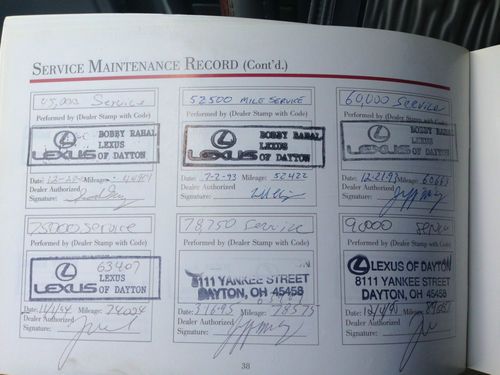 SERVICE MAINTENANCE RECORD (Cont'd.)
45,000 Service
Performed by (Dealer Stamp with Code)
BOBBY RAHAL
LEXUS
LEXUS OF DAYTON
Date: Mileage:
Dealer Authorized
Signature:
52500 MILE SERVICE
Performed by (Dealer Stamp with Code)
BOBBY RAHAL
LEXUS
LEXUS OF DAYTON
Date: 7-2-93 Mileage: 52422
Dealer Authorized
Signature:
60,000 SERVICE
Performed by (Dealer Stamp with Code)
BOBBY RAHAL
LEXUS
LEXUS OF DAYTON
Date: 12-21-93 Mileage: 60663
Dealer Authorized
Signature:
75000 Service
Performed by (Dealer Stamp with Code)
63407
LEXUS
LEXUS OF DAYTON
Date: Mileage: 74004
Dealer Authorized
Signature:
78,750 Service
Performed by (Dealer Stamp with Code)
8111 YANKEE STREET
DAYTON, OH 45458
Date: 3-16-95 Mileage: 78575
Dealer Authorized
Signature:
90000 service
Performed by (Dealer Stamp with Code)
LEXUS OF DAYTON
8111 YANKEE STREET
DAYTON, OH 45458
Date: Mileage:
Dealer Authorized
Signature:
38